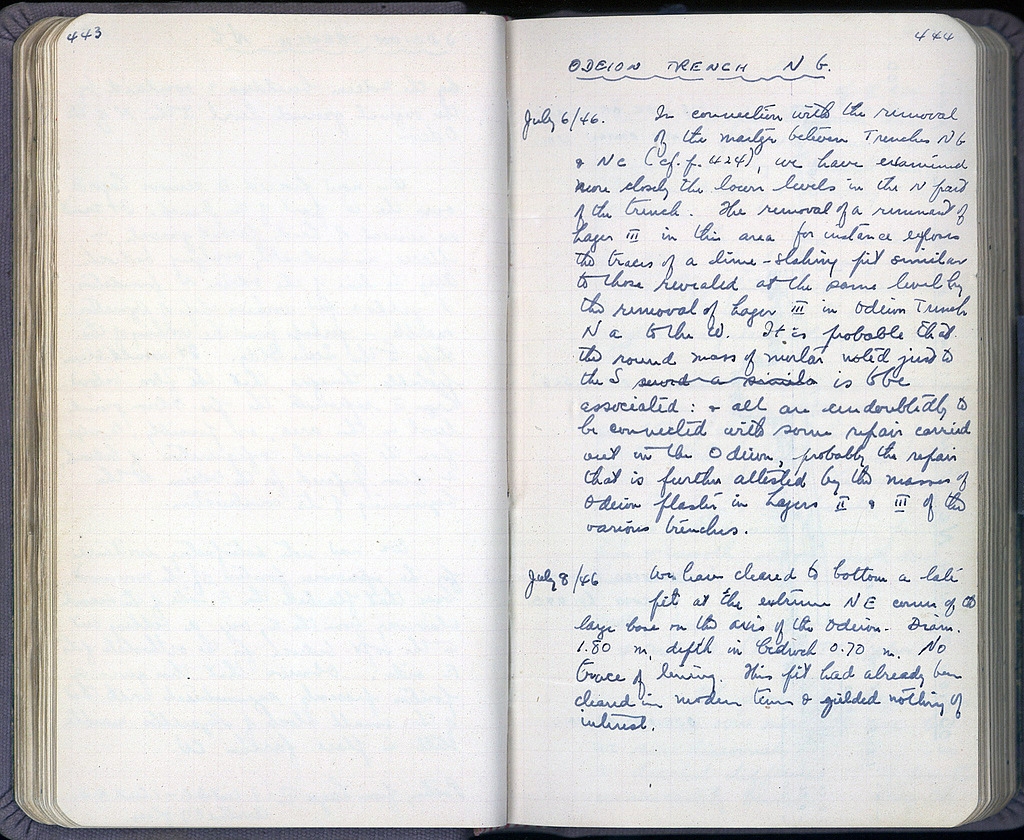 443
444
ODEION TRENCH N b.
July 6/46. In connection with the removal
of the martyr between Trenches Nb
& Nc (cf. p. 424), we have examined
more closely the lower levels in the N part
of the trench. The removal of a remnant of
Layer III in this area for instance exposes
the traces of a lime-slaking pit similar
to those revealed at the same level by
the removal of Layer III in Odeion Trench
N a to the W. It is probable that
the round mass of mortar noted just to
the S served a similar is to be
associated: & all are undoubtedly to
be connected with some repair carried
out in the Odeion, probably the repair
that is further attested by the masses of
Odeion plaster in Layers II & III of the
various trenches.
July 8/46 We have cleared to bottom a late
pit at the extreme NE corner of the
large base on the axis of the Odeion. Diam.
1.80 m, depth in bedrock 0.70 m. No
trace of lining. This pit had already been
cleared in modern times & yielded nothing of
interest.